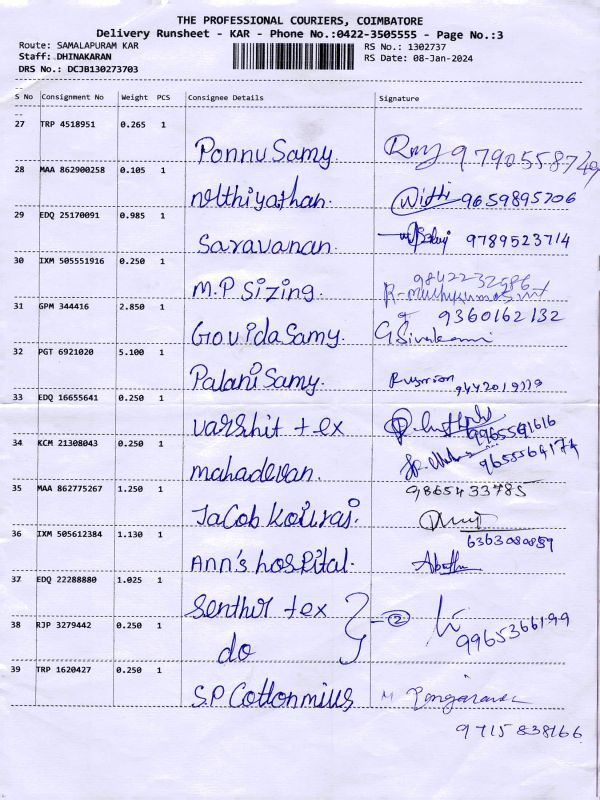 THE PROFESSIONAL COURIERS, COIMBATORE
Delivery Runsheet - KAR - Phone No.:0422-3505555 - Page No.:3
Route: SAMALAPURAM KAR RS No.: 1302737
Staff: DHINAKARAN RS Date: 08-Jan-2024
DRS No.: DCJB130273703
S No Consignment No Weight PCS Consignee Details Signature
27 TRP 4518951 0.265 1
PonnuSamy 9790558749
28 MAA 862900258 0.105 1
nithiyathan 9659895706
29 EDQ 25170091 0.985 1
Saravanan. 9789523714
30 IXM 505551916 0.250 1
9842232686
M.P Sizing.
31 GPM 344416 2.850 1
9360162132
GovidaSamy G Sivakami
32 PGT 6921020 5.100 1
PalaniSamy. 9442019119
33 EDQ 16655641 0.250 1
varshit tex 9965591616
34 KCM 21308043 0.250 1
mahadevan. 9655564174
35 MAA 862775267 1.250 1 9865433785
JaCob
36 IXM 505612384 1.130 1 6363080859
Ann's hosPital.
37 EDQ 22288880 1.025 1
Senthur tex 2
38 RJP 3279442 0.250 1 9965366199
do
39 TRP 1620427 0.250 1
S.P Cottonmills M
9715838166